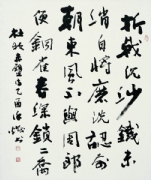 折戟沈沙鐵未
銷自將磨洗認前
朝東風不與周郎
便銅雀春深鎖二喬
杜牧